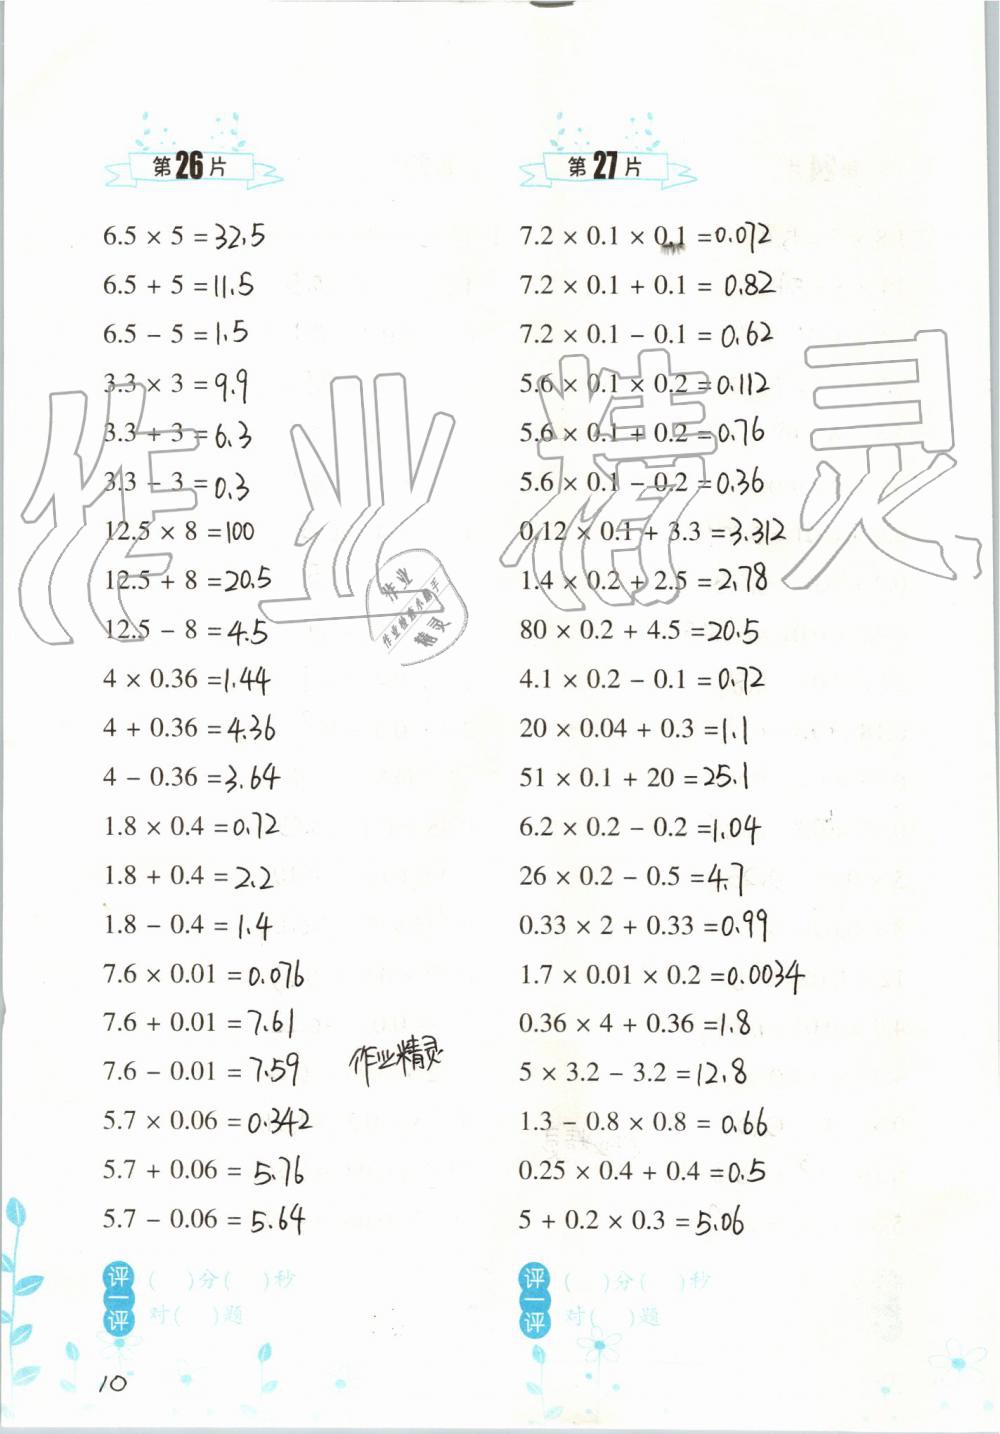 第26片
6.5 × 5 = 32.5
6.5 + 5 = 11.5
6.5 − 5 = 1.5
3.3 × 3 = 9.9
3.3 + 3 = 6.3
3.3 − 3 = 0.3
12.5 × 8 = 100
12.5 + 8 = 20.5
12.5 − 8 = 4.5
4 × 0.36 = 1.44
4 + 0.36 = 4.36
4 − 0.36 = 3.64
1.8 × 0.4 = 0.72
1.8 + 0.4 = 2.2
1.8 − 0.4 = 1.4
7.6 × 0.01 = 0.076
7.6 + 0.01 = 7.61
7.6 − 0.01 = 7.59
5.7 × 0.06 = 0.342
5.7 + 0.06 = 5.76
5.7 − 0.06 = 5.64
评一评
( )分( )秒
对( )题
第27片
7.2 × 0.1 × 0.1 = 0.072
7.2 × 0.1 + 0.1 = 0.82
7.2 × 0.1 − 0.1 = 0.62
5.6 × 0.1 × 0.2 = 0.112
5.6 × 0.1 + 0.2 = 0.76
5.6 × 0.1 − 0.2 = 0.36
0.12 × 0.1 + 3.3 = 3.312
1.4 × 0.2 + 2.5 = 2.78
80 × 0.2 + 4.5 = 20.5
4.1 × 0.2 − 0.1 = 0.72
20 × 0.04 + 0.3 = 1.1
51 × 0.1 + 20 = 25.1
6.2 × 0.2 − 0.2 = 1.04
26 × 0.2 − 0.5 = 4.7
0.33 × 2 + 0.33 = 0.99
1.7 × 0.01 × 0.2 = 0.0034
0.36 × 4 + 0.36 = 1.8
5 × 3.2 − 3.2 = 12.8
1.3 − 0.8 × 0.8 = 0.66
0.25 × 0.4 + 0.4 = 0.5
5 + 0.2 × 0.3 = 5.06
评一评
( )分( )秒
对( )题
作业精灵
作业
作业检查小助手
精灵
作业精灵
10